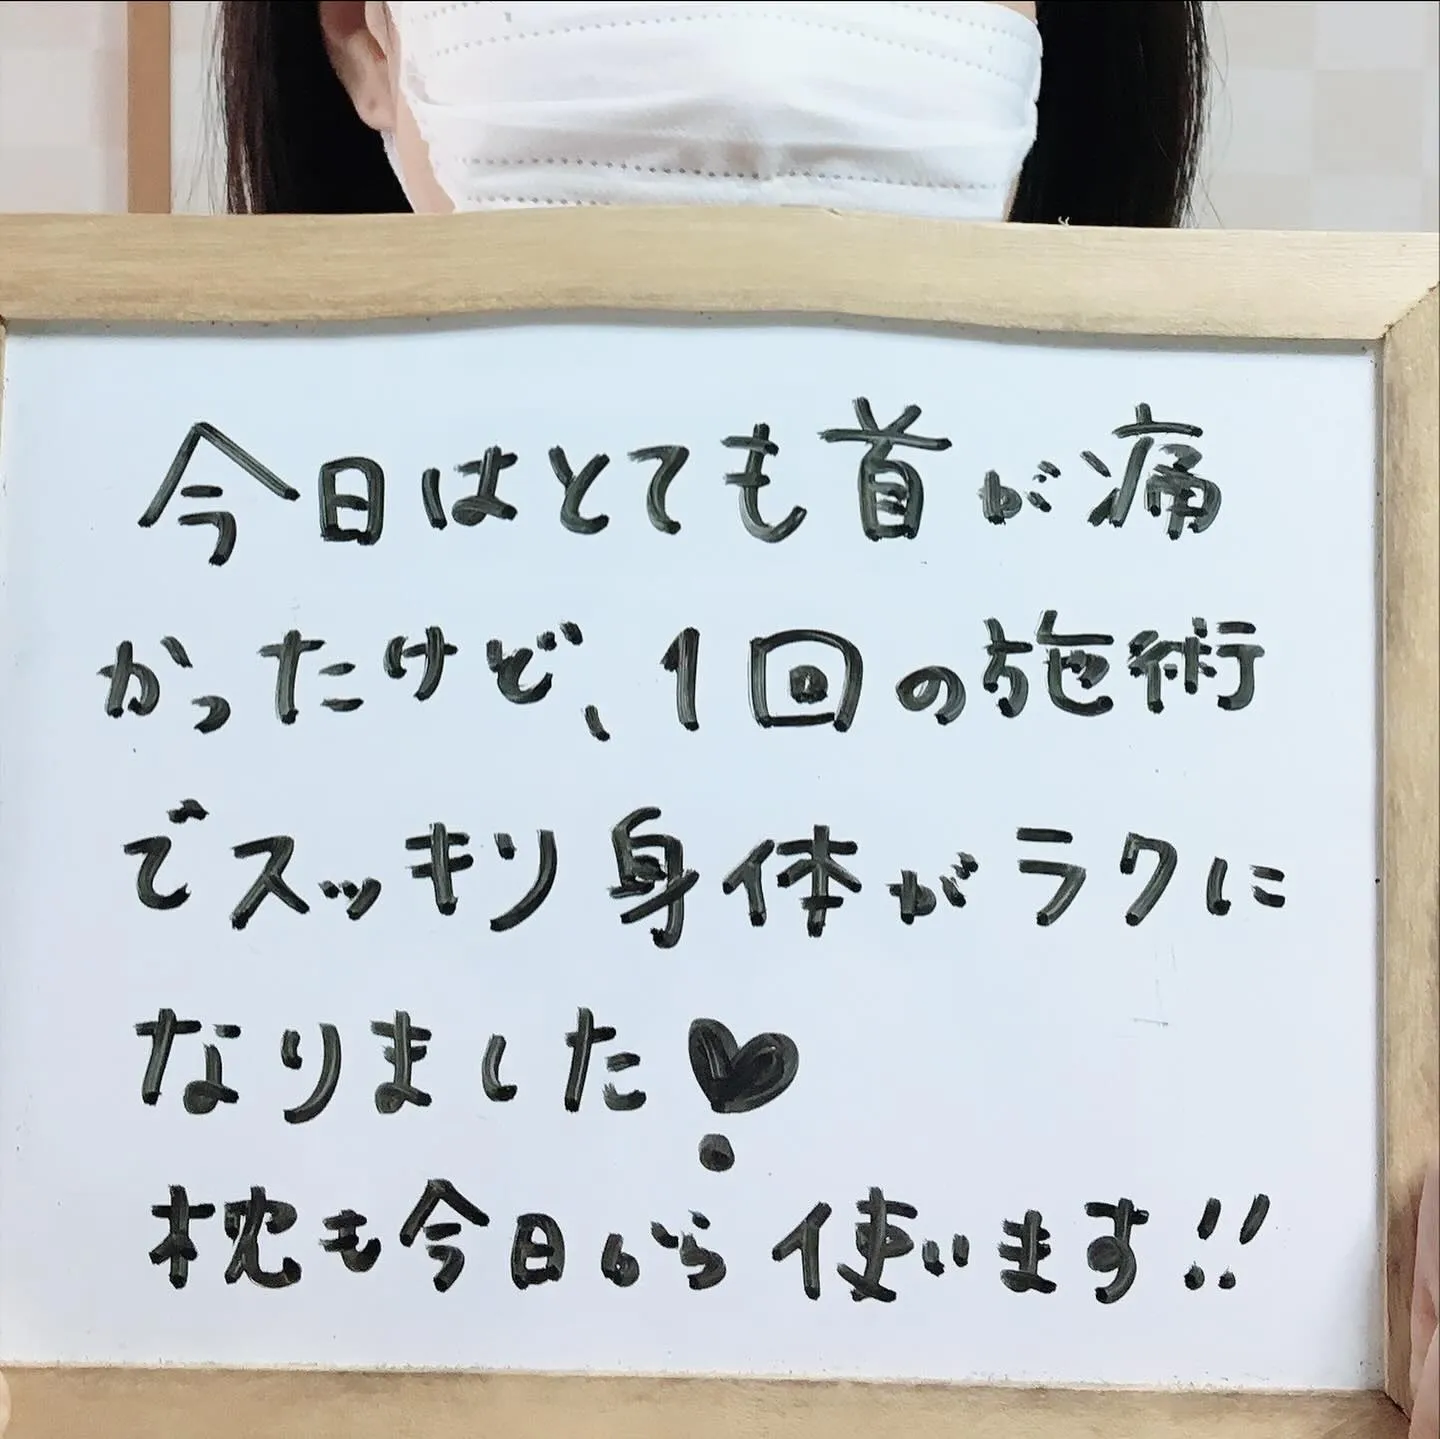 今日はとても首が痛
かったけど、1回の施術
でスッキリ身体がラクに
なりました♥
枕も今日から使います!!